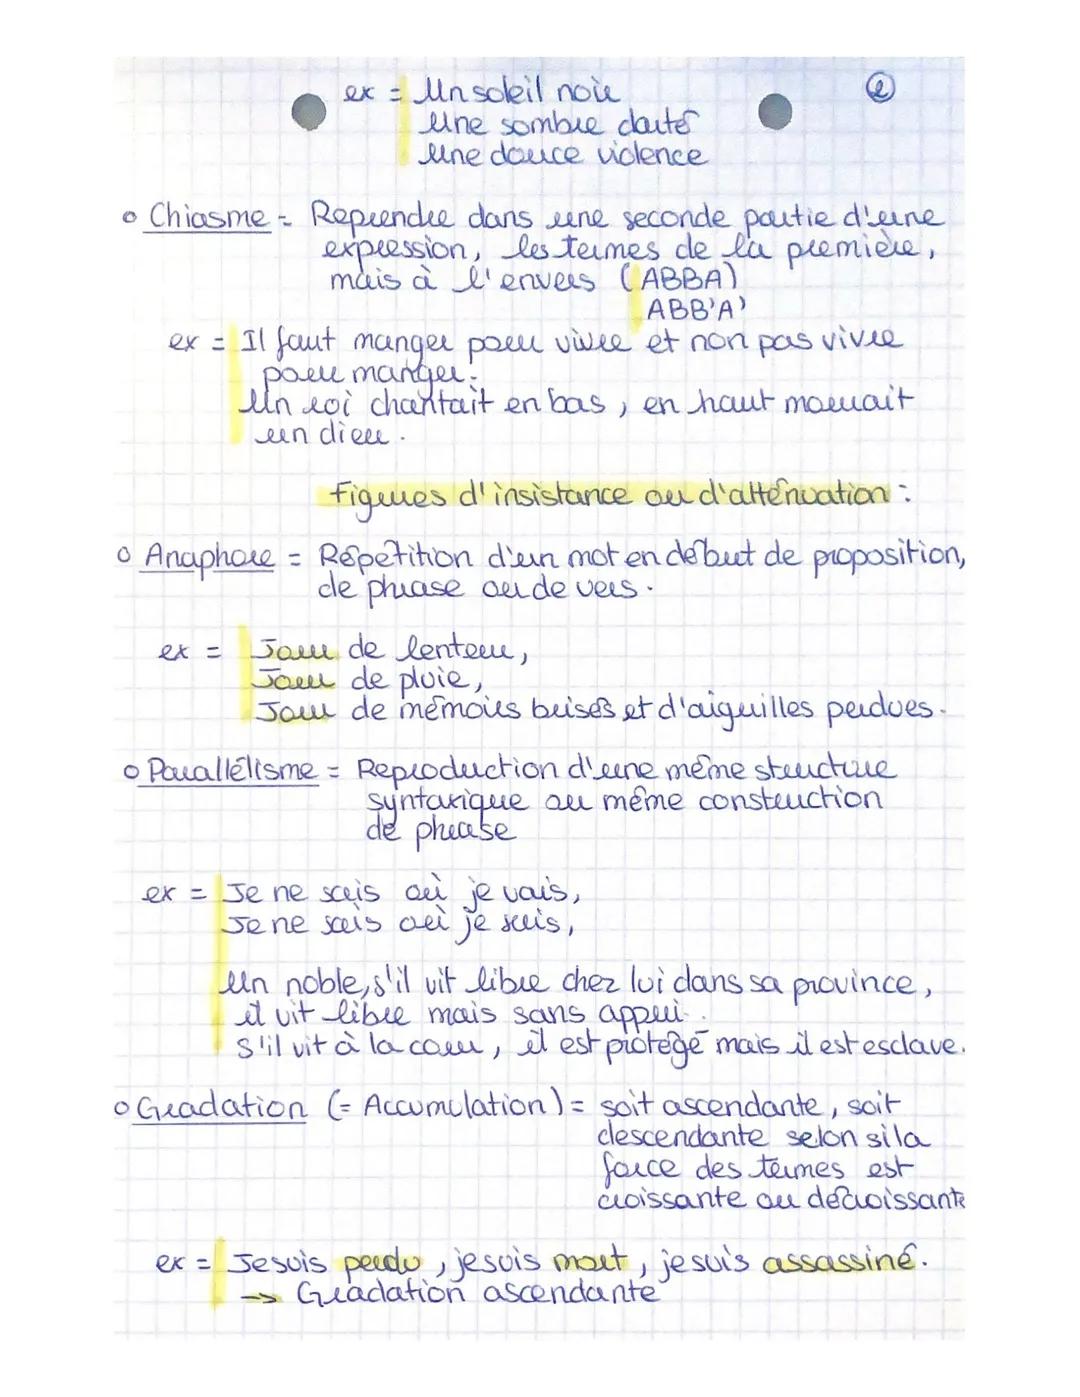 ex = Un soleil noir
②
Une sombre clarté
Une douce violence
o Chiasme = Reprendre dans une seconde partie d'une
expression, les termes de la première,
mais à l'envers (ABBA)
ABB'A'
ex = Il faut manger pour vivre et non pas vivre
pour manger.
Un roi chantait en bas, en haut mourait
un dieu.
Figures d'insistance ou d'atténuation :
o Anaphore = Répétition d'un mot en début de proposition,
de phrase ou de vers.
ex = Jour de lenteur,
Jour de pluie,
Jour de mémoirs brisés et d'aiguilles perdues.
o Parallélisme = Reproduction d'une même structure
syntaxique ou même construction
de phrase
ex = Je ne sais où je vais,
Je ne sais où je suis,
Un noble, s'il vit libre chez lui dans sa province,
il vit libre mais sans appui.
S'il vit à la cour, il est protégé mais il est esclave.
o Gradation (= Accumulation) = soit ascendante, soit
descendante selon si la
force des termes est
croissante ou décroissante
ex = Je suis perdu, je suis mort, je suis assassiné.
→ Gradation ascendante